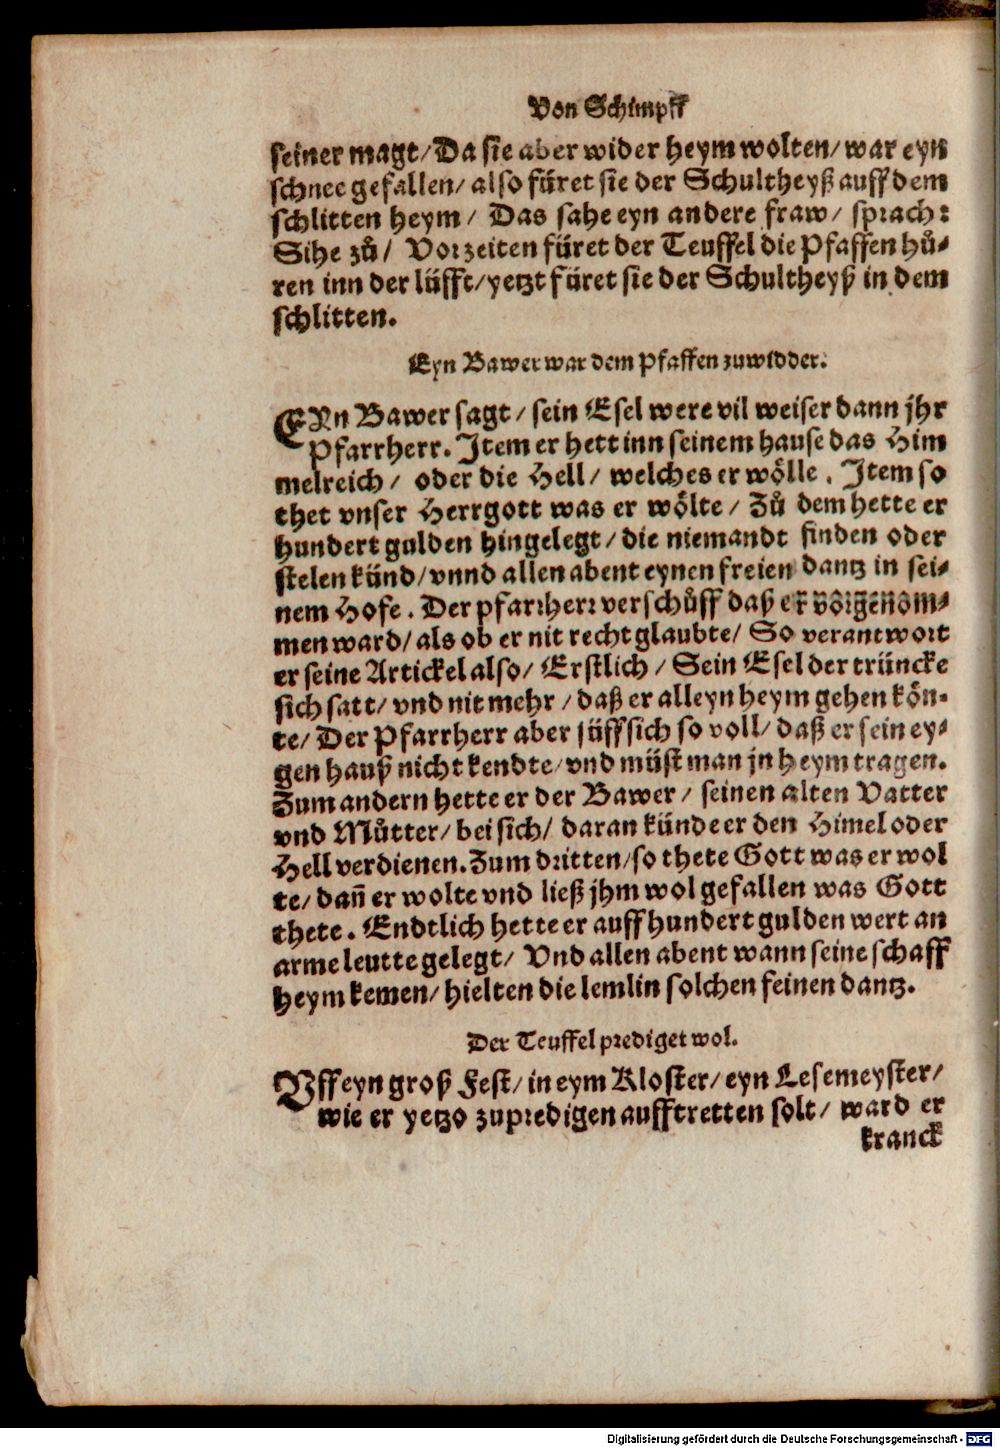 Von Schimpff
seiner magt/ Da sie aber wider heym wolten/ war eyn
schnee gefallen/ also füret sie der Schultheyß auff dem
schlitten heym/ Das sahe eyn andere fraw/ sprach:
Sihe zů/ Vorzeiten füret der Teuffel die Pfaffen hů-
ren inn der lüfft/ yetzt füret sie der Schultheyß in dem
schlitten.
Eyn Bawer war dem Pfaffen zuwidder.
EYn Bawer sagt/ sein Esel were vil weiser dann jhr
Pfarrherr. Item er hett inn seinem hause das Him
melreich/ oder die Hell/ welches er wölle. Item so
thet vnser Herrgott was er wölte/ Zů dem hette er
hundert gulden hingelegt/ die niemandt finden oder
stelen künd/ vnnd allen abent eynen freien dantz in sei-
nem Hofe. Der pfarrherr verschůff daß er vorgenom-
men ward/ als ob er nit recht glaubte/ So verantwort
er seine Artickel also/ Erstlich/ Sein Esel der trüncke
sich satt/ vnd nit mehr/ daß er alleyn heym gehen kön-
te/ Der Pfarrherr aber süff sich so voll/ daß er sein ey-
gen hauß nicht kendte/ vnd müst man jn heym tragen.
Zum andern hette er der Bawer/ seinen alten Vatter
vnd Můtter/ bei sich/ daran künde er den Himel oder
Hell verdienen. Zum dritten/ so thete Gott was er wol
te/ dañ er wolte vnd ließ jhm wol gefallen was Gott
thete. Endtlich hette er auff hundert gulden wert an
arme leutte gelegt/ Vnd allen abent wann seine schaff
heym kemen/ hielten die lemlin solchen feinen dantz.
Der Teuffel prediget wol.
Vff eyn groß Fest/ in eym Kloster/ eyn Lesemeyster/
wie er yetzo zupredigen aufftretten solt/ ward er
kranck
Digitalisierung gefördert durch die Deutsche Forschungsgemeinschaft - DFG